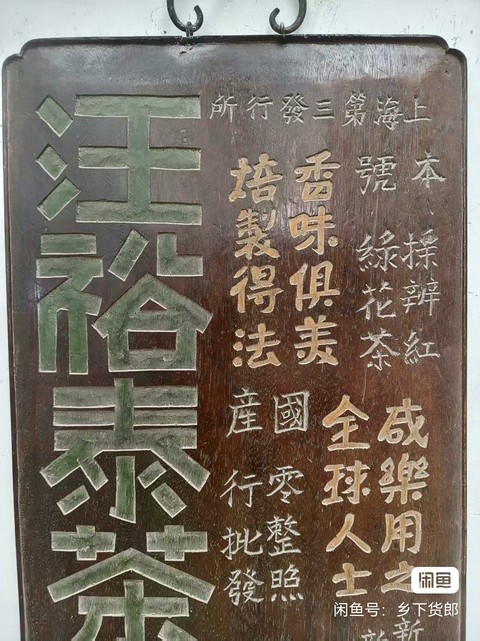 上海第三發行所
本號
採辨紅
綠花茶
咸樂用之
全球人士
香味俱美
焙製得法
國產
零整照
行批發
新
汪裕泰茶
闲鱼
闲鱼号：乡下货郎